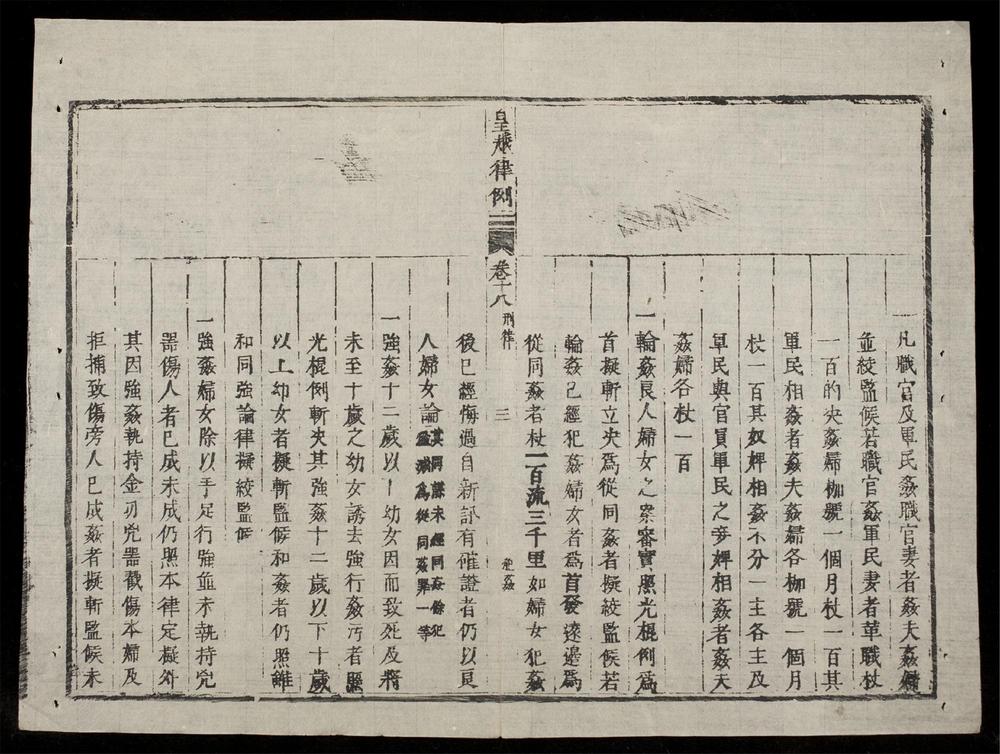 凡職官及軍民姦職官妻者姦夫姦婦
並絞監候若職官姦軍民妻者革職杖
一百的决姦婦枷號一個月杖一百其
軍民相姦者姦夫姦婦各枷號一個月
杖一百其奴婢相姦不分一主各主及
軍民與官員軍民之妾婢相姦者姦夫
姦婦各杖一百
一輪姦良人婦女之案審實照光棍例爲
首擬斬立决爲從同姦者擬絞監候若
輪姦已經犯姦婦女者爲首發遠邊爲
從同姦者杖一百流三千里如婦女犯姦
皇越律例 卷十八 刑律 三 犯姦
後已經悔過自新訊有確證者仍以良
人婦女論其同謀未經同姦餘犯
並減爲從同姦罪一等
一強姦十二歲以下幼女因而致死及將
未至十歲之幼女誘去強行姦污者照
光棍例斬决其強姦十二歲以下十歲
以上幼女者擬斬監候和姦者仍照雖
和同強論律擬絞監候
一強姦婦女除以手足行強並未執持兇
器傷人者已成未成仍照本律定擬外
其因強姦執持金刃兇器戳傷本婦及
拒捕致傷旁人已成姦者擬斬監候未